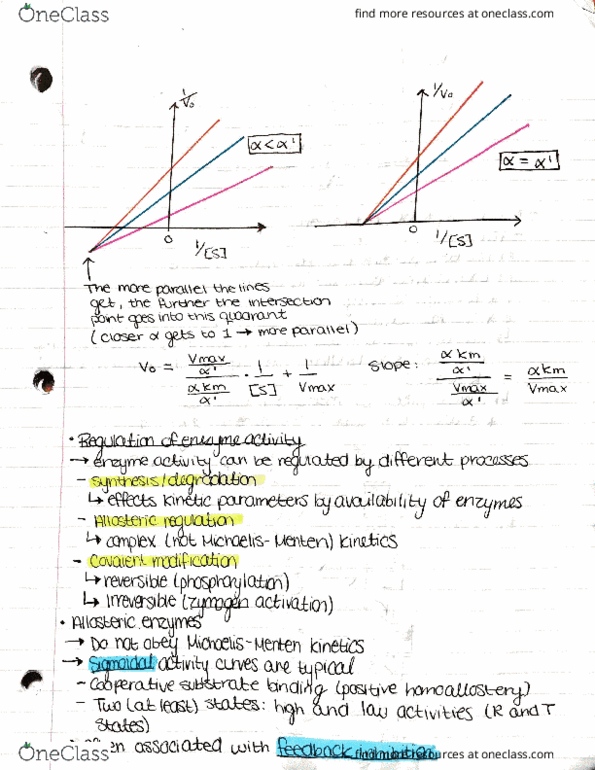 OneClass
find more resources at oneclass.com
1/V₀
α < α'
0
1/[S]
1/V₀
α = α'
0
1/[S]
The more parallel the lines
get, the further the intersection
point goes into this quadrant
(closer α gets to 1 → more parallel)
V₀ = (Vmax/α')/(αkm/α') · 1/[S] + 1/Vmax
Slope: (αkm/α')/(Vmax/α') = αkm/Vmax
• Regulation of enzyme activity
→ enzyme activity can be regulated by different processes
- synthesis/degradation
↳ effects kinetic parameters by availability of enzymes
- Allosteric regulation
↳ complex (not Michaelis-Menten) kinetics
- Covalent modification
↳ reversible (phosphorylation)
↳ Irreversible (zymogen activation)
• Allosteric enzymes
→ Do not obey Michaelis-Menten kinetics
→ Sigmoidal activity curves are typical
- Cooperative substrate binding (positive homoallostery)
- Two (at least) states: high and low activities (R and T
states)
associated with feedback inhibition
OneClass
find more resources at oneclass.com